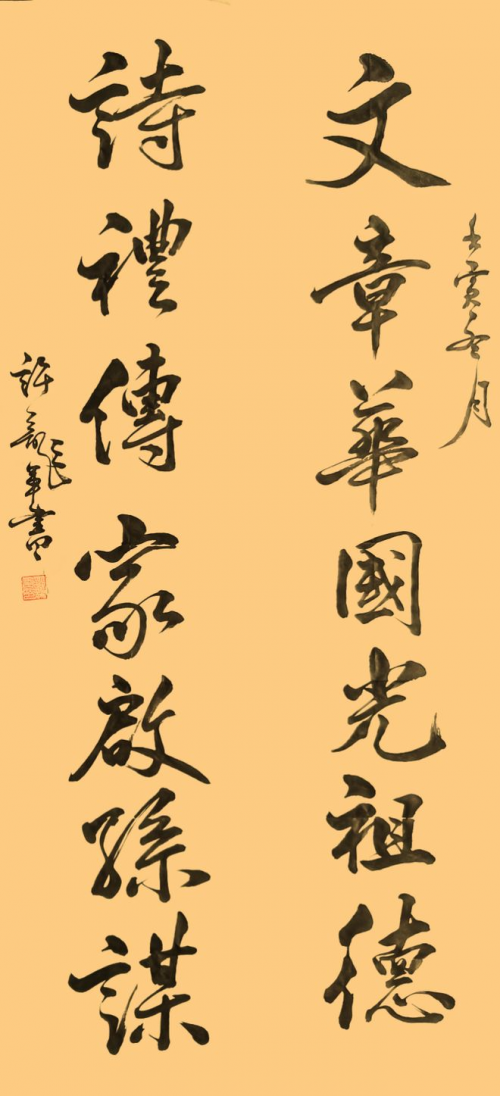 壬寅冬月
文章華國光祖德
詩禮傳家啟孫謀
許龍年書